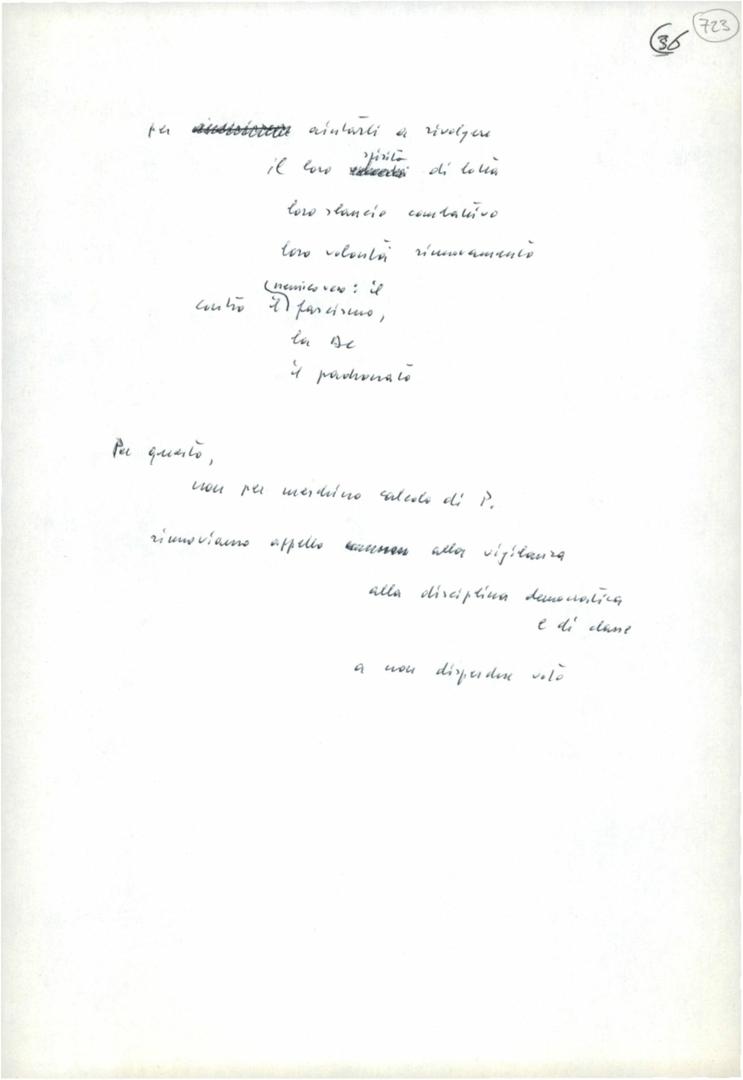 36 723
per aiutarli a rivolgere
spirito
il loro di lotta
loro slancio combattivo
loro volontà rinnovamento
nemico vero: il
contro il fascismo,
la DC
il padronato
Per questo,
non per meschino calcolo di P.
rinnoviamo appello alla vigilanza
alla disciplina democratica
e di classe
a non disperdere voto